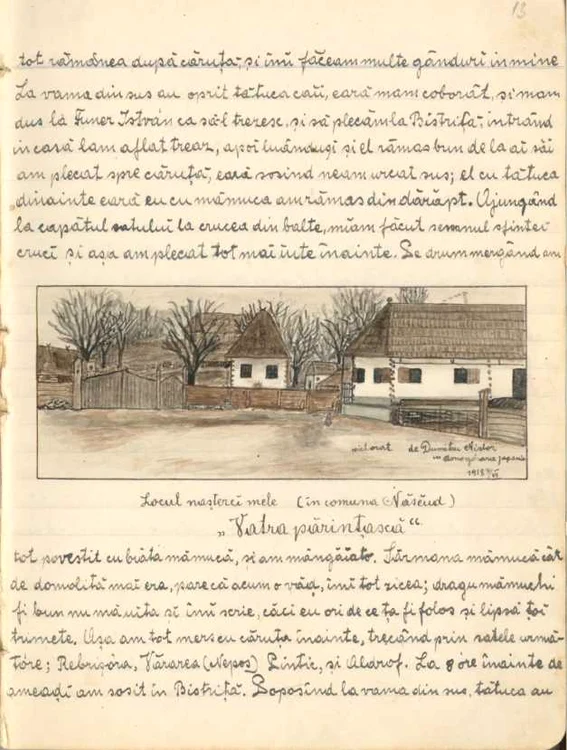 13
tot rămânea după căruța, și înú făceam multe gânduri in mine
La vama din sus au oprit tătuca caii, eară mam coborât, si mam
dus la Funer István ca săl trezesc, și să plecăm la Bistrița - intrând
in casă lam aflat treaz, apoi luânduși și el rămas bun de la ai săi
am plecat spre căruță, eară sosind neam urcat sus; el cu tătuca
dinainte eară eu cu mămuca am rămas din dărăpt. Ajungând
la capătul satului la crucea din balte, miam făcut semnul sfintei
cruci și așa am plecat tot mai iute înainte. Pe drum mergând am
de Dumitru Nistor
1918
Locul nașterei mele (în comuna Năsĕud)
„Vatra părințască“
tot povestit cu biăta mămucă, si am mângăiato. Sărmana mămucă cât
de domolită mai era, parecă acum o văd, îmi tot zicea; dragu mămuchi
fi bun nu mă uita si îmi scrie, căci eu ori de ce ța fi folos și lipsă țoi
trumete. Așa am tot mers cu căruța înainte, trecând prin satele urmă-
tóre; Rebrișóra, Vărarea (Nepos) Lintic, și Aldrof. La 8 óre înainte de
ameadi am sosit în Bistriță. Soposind la vama din sus, tătuca au